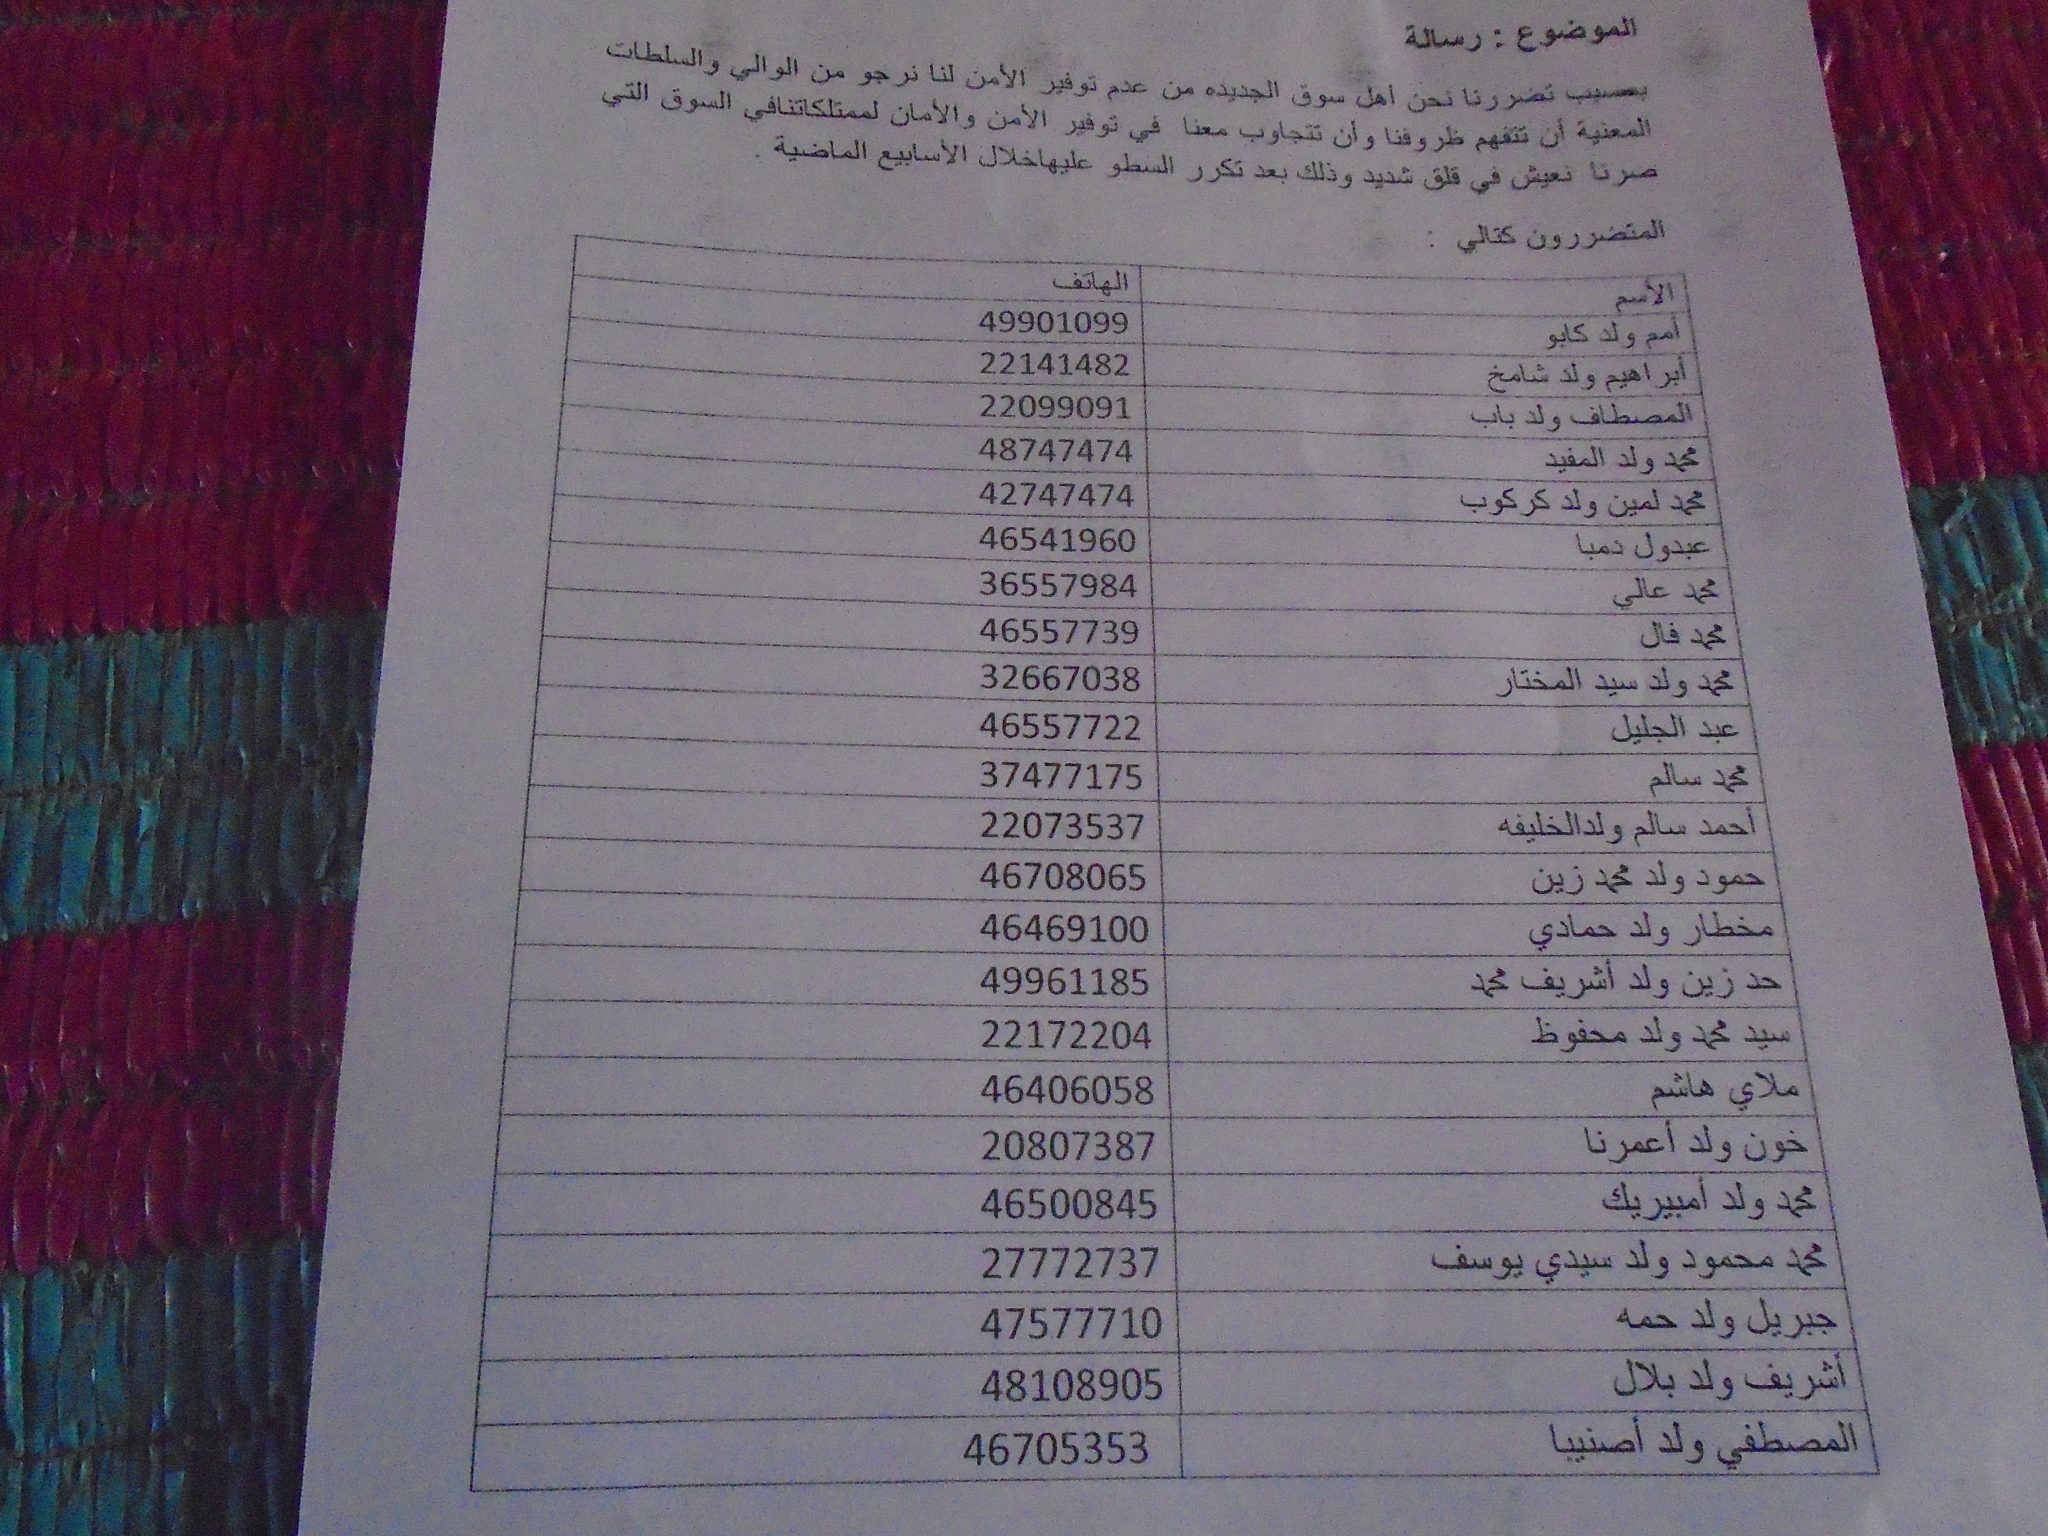 الموضوع : رسالة
بسبب تضررنا نحن اهل سوق الجديده من عدم توفير الأمن لنا نرجو من الوالي والسلطات
المعنية أن تتفهم ظروفنا وأن تتجاوب معنا في توفير الأمن والأمان لممتلكاتنافي السوق التي
صرنا نعيش في قلق شديد وذلك بعد تكرر السطو عليهاخلال الأسابيع الماضية .
المتضررون كتالي :
الأسم الهاتف
أمم ولد كابو 49901099
أبراهيم ولد شامخ 22141482
المصطاف ولد باب 22099091
محمد ولد المفيد 48747474
محمد لمين ولد كركوب 42747474
عبدول دمبا 46541960
محمد عالي 36557984
محمد فال 46557739
محمد ولد سيد المختار 32667038
عبد الجليل 46557722
محمد سالم 37477175
أحمد سالم ولدالخليفه 22073537
حمود ولد محمد زين 46708065
مخطار ولد حمادي 46469100
حد زين ولد أشريف محمد 49961185
سيد محمد ولد محفوظ 22172204
ملاي هاشم 46406058
خون ولد أعمرنا 20807387
محمد ولد أمبيريك 46500845
محمد محمود ولد سيدي يوسف 27772737
جبريل ولد حمه 47577710
أشريف ولد بلال 48108905
المصطفي ولد أصنيبا 46705353